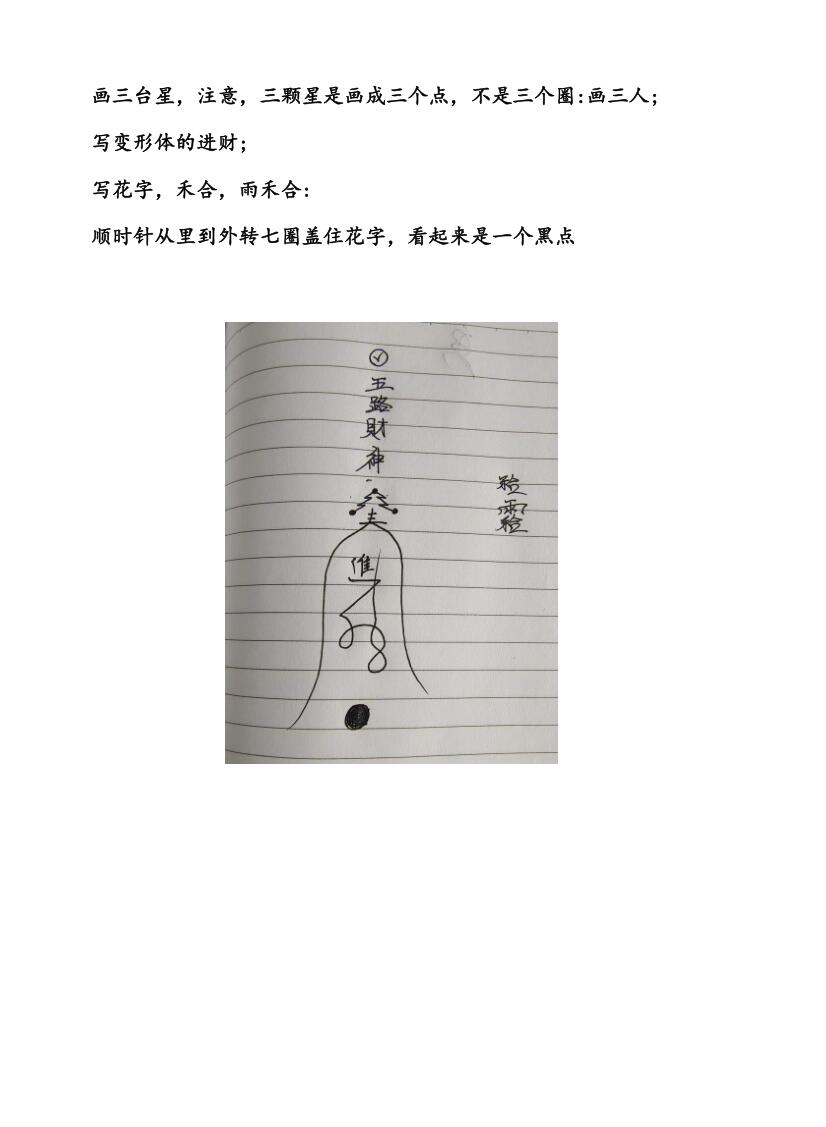 画三台星，注意，三颗星是画成三个点，不是三个圈:画三人；
写变形体的进财；
写花字，禾合，雨禾合：
顺时针从里到外转七圈盖住花字，看起来是一个黑点
五
路
財
神
進